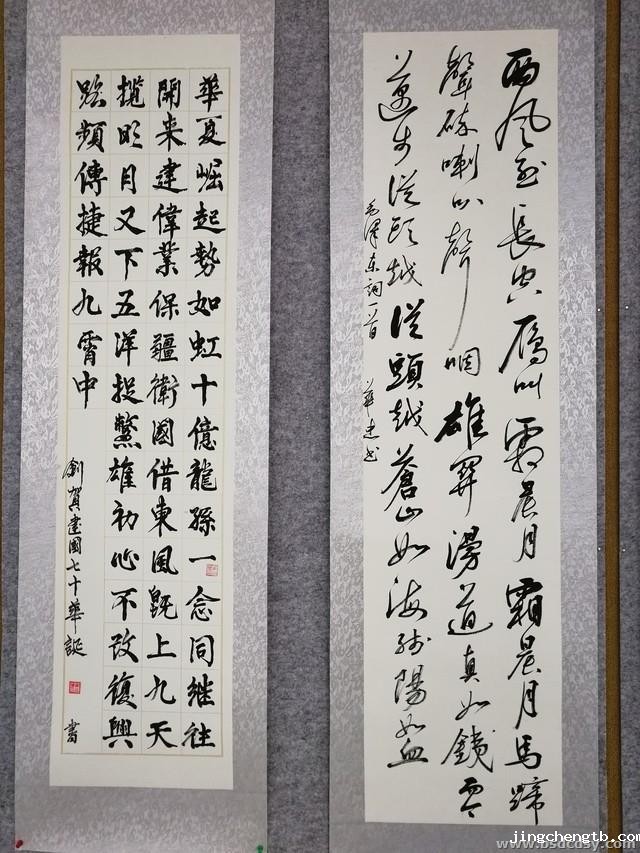 西风烈長空雁叫霜晨月霜晨月马蹄
聲碎喇叭聲咽雄關漫道真如鐵而今
邁步從頭越從頭越蒼山如海殘陽如血
毛澤東詞一首 華忠书
華夏崛起勢如虹十億龍孫一念同繼往
開来建偉業保疆衛國借東風既上九天
攬明月又下五洋捉鱉雄初心不改復興
路頻傳捷報九霄中
創賀建國七十華誕 書
jingchengtb.com